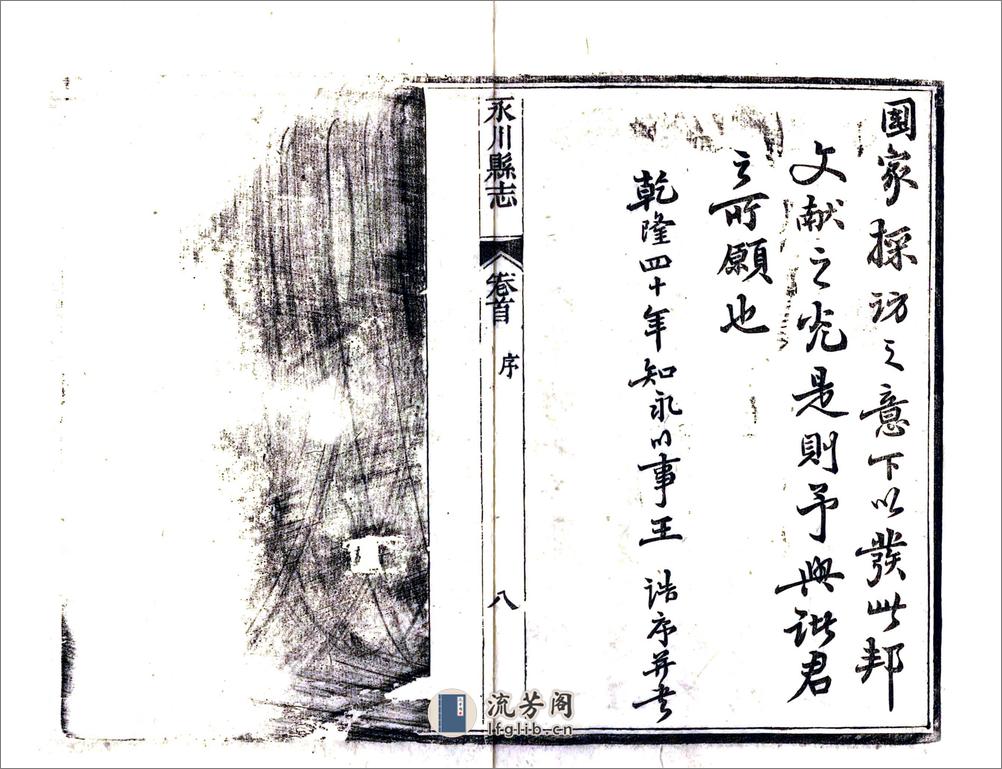 國家採訪之意下以發此邦
文献之光是則予與諸君
之所願也
乾隆四十年知永川事王誥序并書
永川縣志
卷首
序
八
流芳阁
lfglib.cn